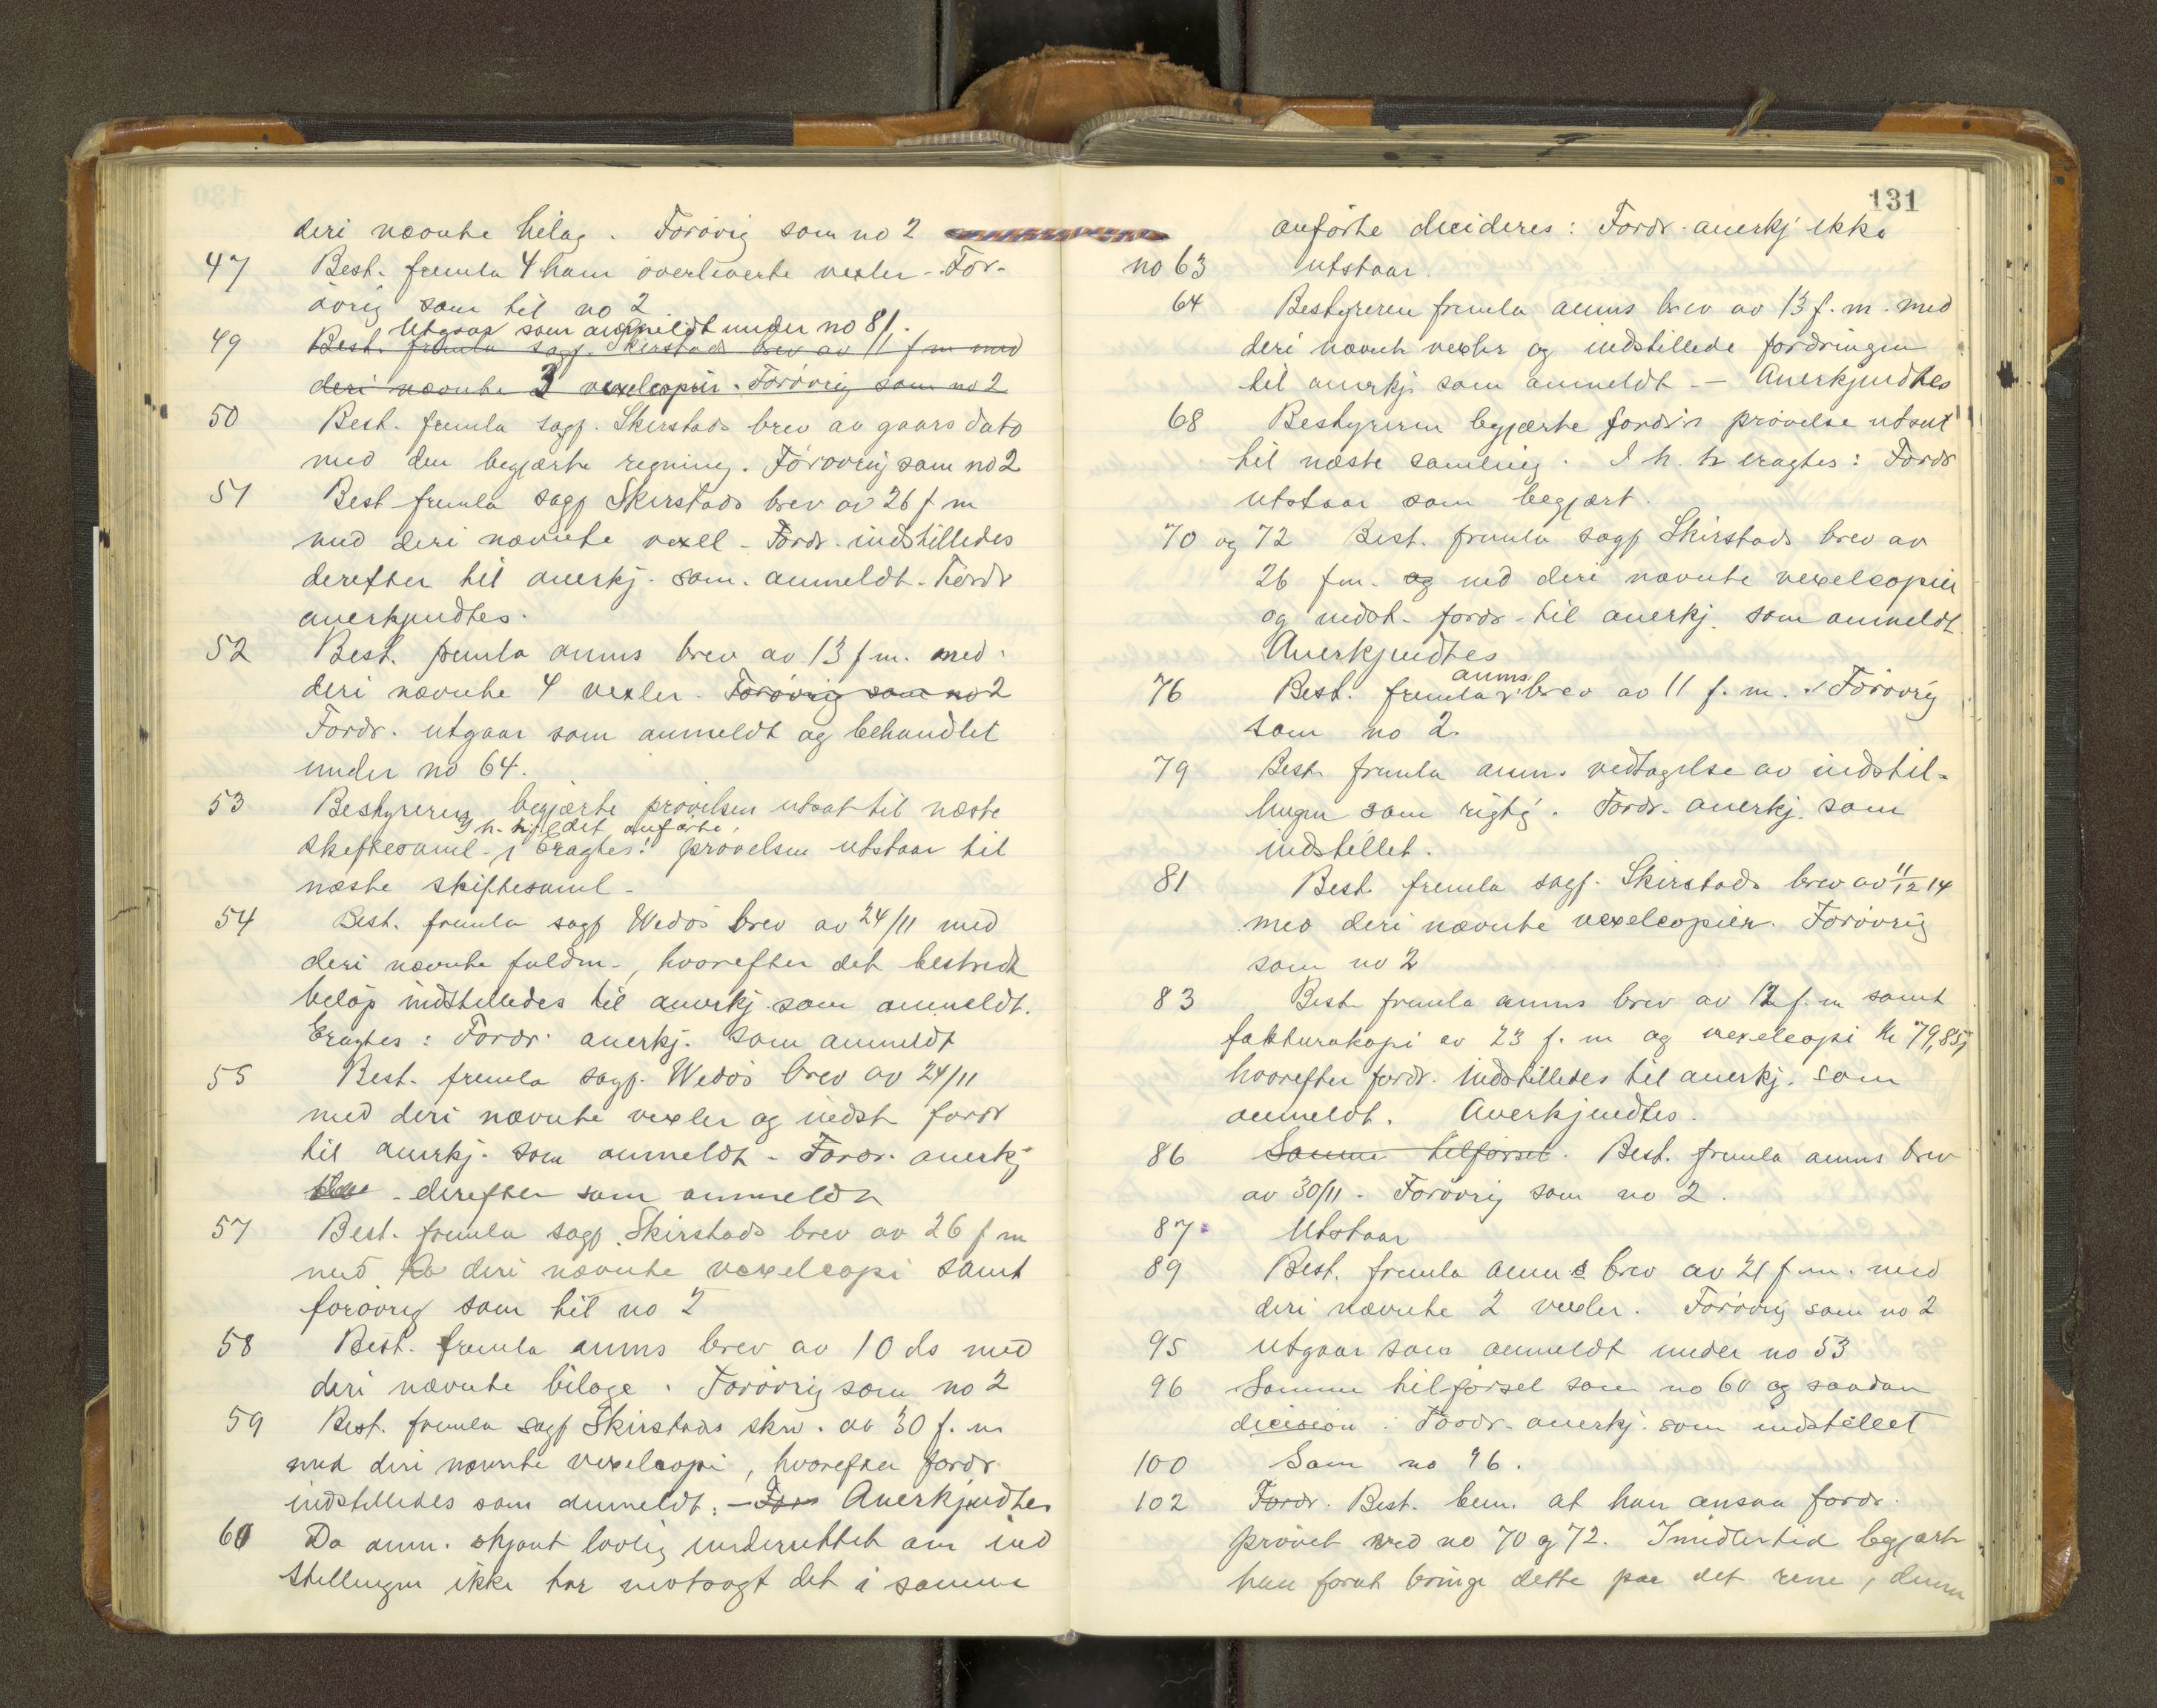 deri nævnte bilag. Forøvrig som no 2
47 Best. fremla 4 ham overleverte vexler. For-
øvrig som til no 2
Utgaar som anmeldt under no 81.
49 Best. fremla sagf. Skirstads brev av 11 f m med
deri nævnte 3 vexelcopier. Forøvrig som no 2
50 Best. fremla sagf. Skirstads brev av gaars dato
med den begjærte regning. Forøvrig som no 2
51 Best fremla sagf Skirstads brev av 26 f m
med deri nævnte vexel. Fordr. indstilledes
derefter til anerkj. som. anmeldt. Fordr
anerkjendtes.
52 Best. fremla anms brev av 13 f m. med
deri nævnte 4 vexler. Forøvrig som no 2
Fordr. utgaar som anmeldt og behandlet
under no 64.
53 Bestyreren begjærte prøvelsen utsat til næste
I h. til det anførte
skiftesaml. Eragtes: prøvelsen utstaar til
næste skiftesaml.
54 Best. fremla sagf Wedøs brev av 24/11 med
deri nævnte fuldm., hvorefter det bestridte
beløp indstilledes til anerkj. som anmeldt.
Eragtes: Fordr. anerkj. som anmeldt
55 Best. fremla sagf. Wedøs brev av 24/11
med deri nævnte vexler og indst fordr
til anerkj. som anmeldt. Fordr. anerkj
derefter som anmeldt
57 Best. fremla sagf. Skirstads brev av 26 f m
med deri nævnte vexelcopi samt
forøvrig som til no 2
58 Best. fremla anms brev av 10 ds med
deri nævnte bilage. Forøvrig som no 2
59 Best. fremla sagf Skirstads skr. av 30 f. m
med deri nævnte vexelcopi, hvorefter fordr.
indstilledes som anmeldt. - Anerkjendtes
60 Da anm. skjønt lovlig underrettet om ind
stillingen ikke har motsagt det i samme
131
anførte decideres: Fordr. anerkj ikke
no 63 utstaar.
64 Bestyreren fremla anms brev av 13 f. m. med
deri nævnte vexler og indstillede fordringen
til anerkj. som anmeldt. - Anerkjendtes
68 Bestyreren begjærte fordr's prøvelse utsat
til næste samling. I h. t. eragtes: Fordr
utstaar som begjært.
70 og 72 Best. fremla sagf Skirstads brev av
26 fm. og med deri nævnte vexelcopier
og indst. fordr. til anerkj. som anmeldt
Anerkjendtes
anms
76 Best. fremla brev av 11 f. m. Forøvrig
som no 2.
79 Best. fremla anm. vedtagelse av indstil-
lingen som rigtig. Fordr. anerkj. som
indstillet.
81 Best. fremla sagf. Skirstads brev av 11/12 14
med deri nævnte vexelcopier. Forøvrig
som no 2
83 Best fremla anms brev av 12 f. m samt
fakturakopi av 23 f. m og vexelcopi kr 79,85,
hvorefter fordr. indstilledes til anerkj. som
anmeldt. Anerkjendtes.
86 Samme tilførsel. Best. fremla anms brev
av 30/11. Forøvrig som no 2.
87 Utstaar
89 Best. fremla anms brev av 21 f. m. med
deri nævnte 2 vexler. Forøvrig som no 2
95 utgaar som anmeldt under no 53
96 Samme tilførsel som no 60 og saadan
decision: Fordr. anerkj. som indstillet
100 Som no 96.
102 Fordr. Best. bem. at han ansaa fordr.
prøvet ved no 70 og 72. Imidlertid begjærte
han forat bringe dette paa det rene, denne